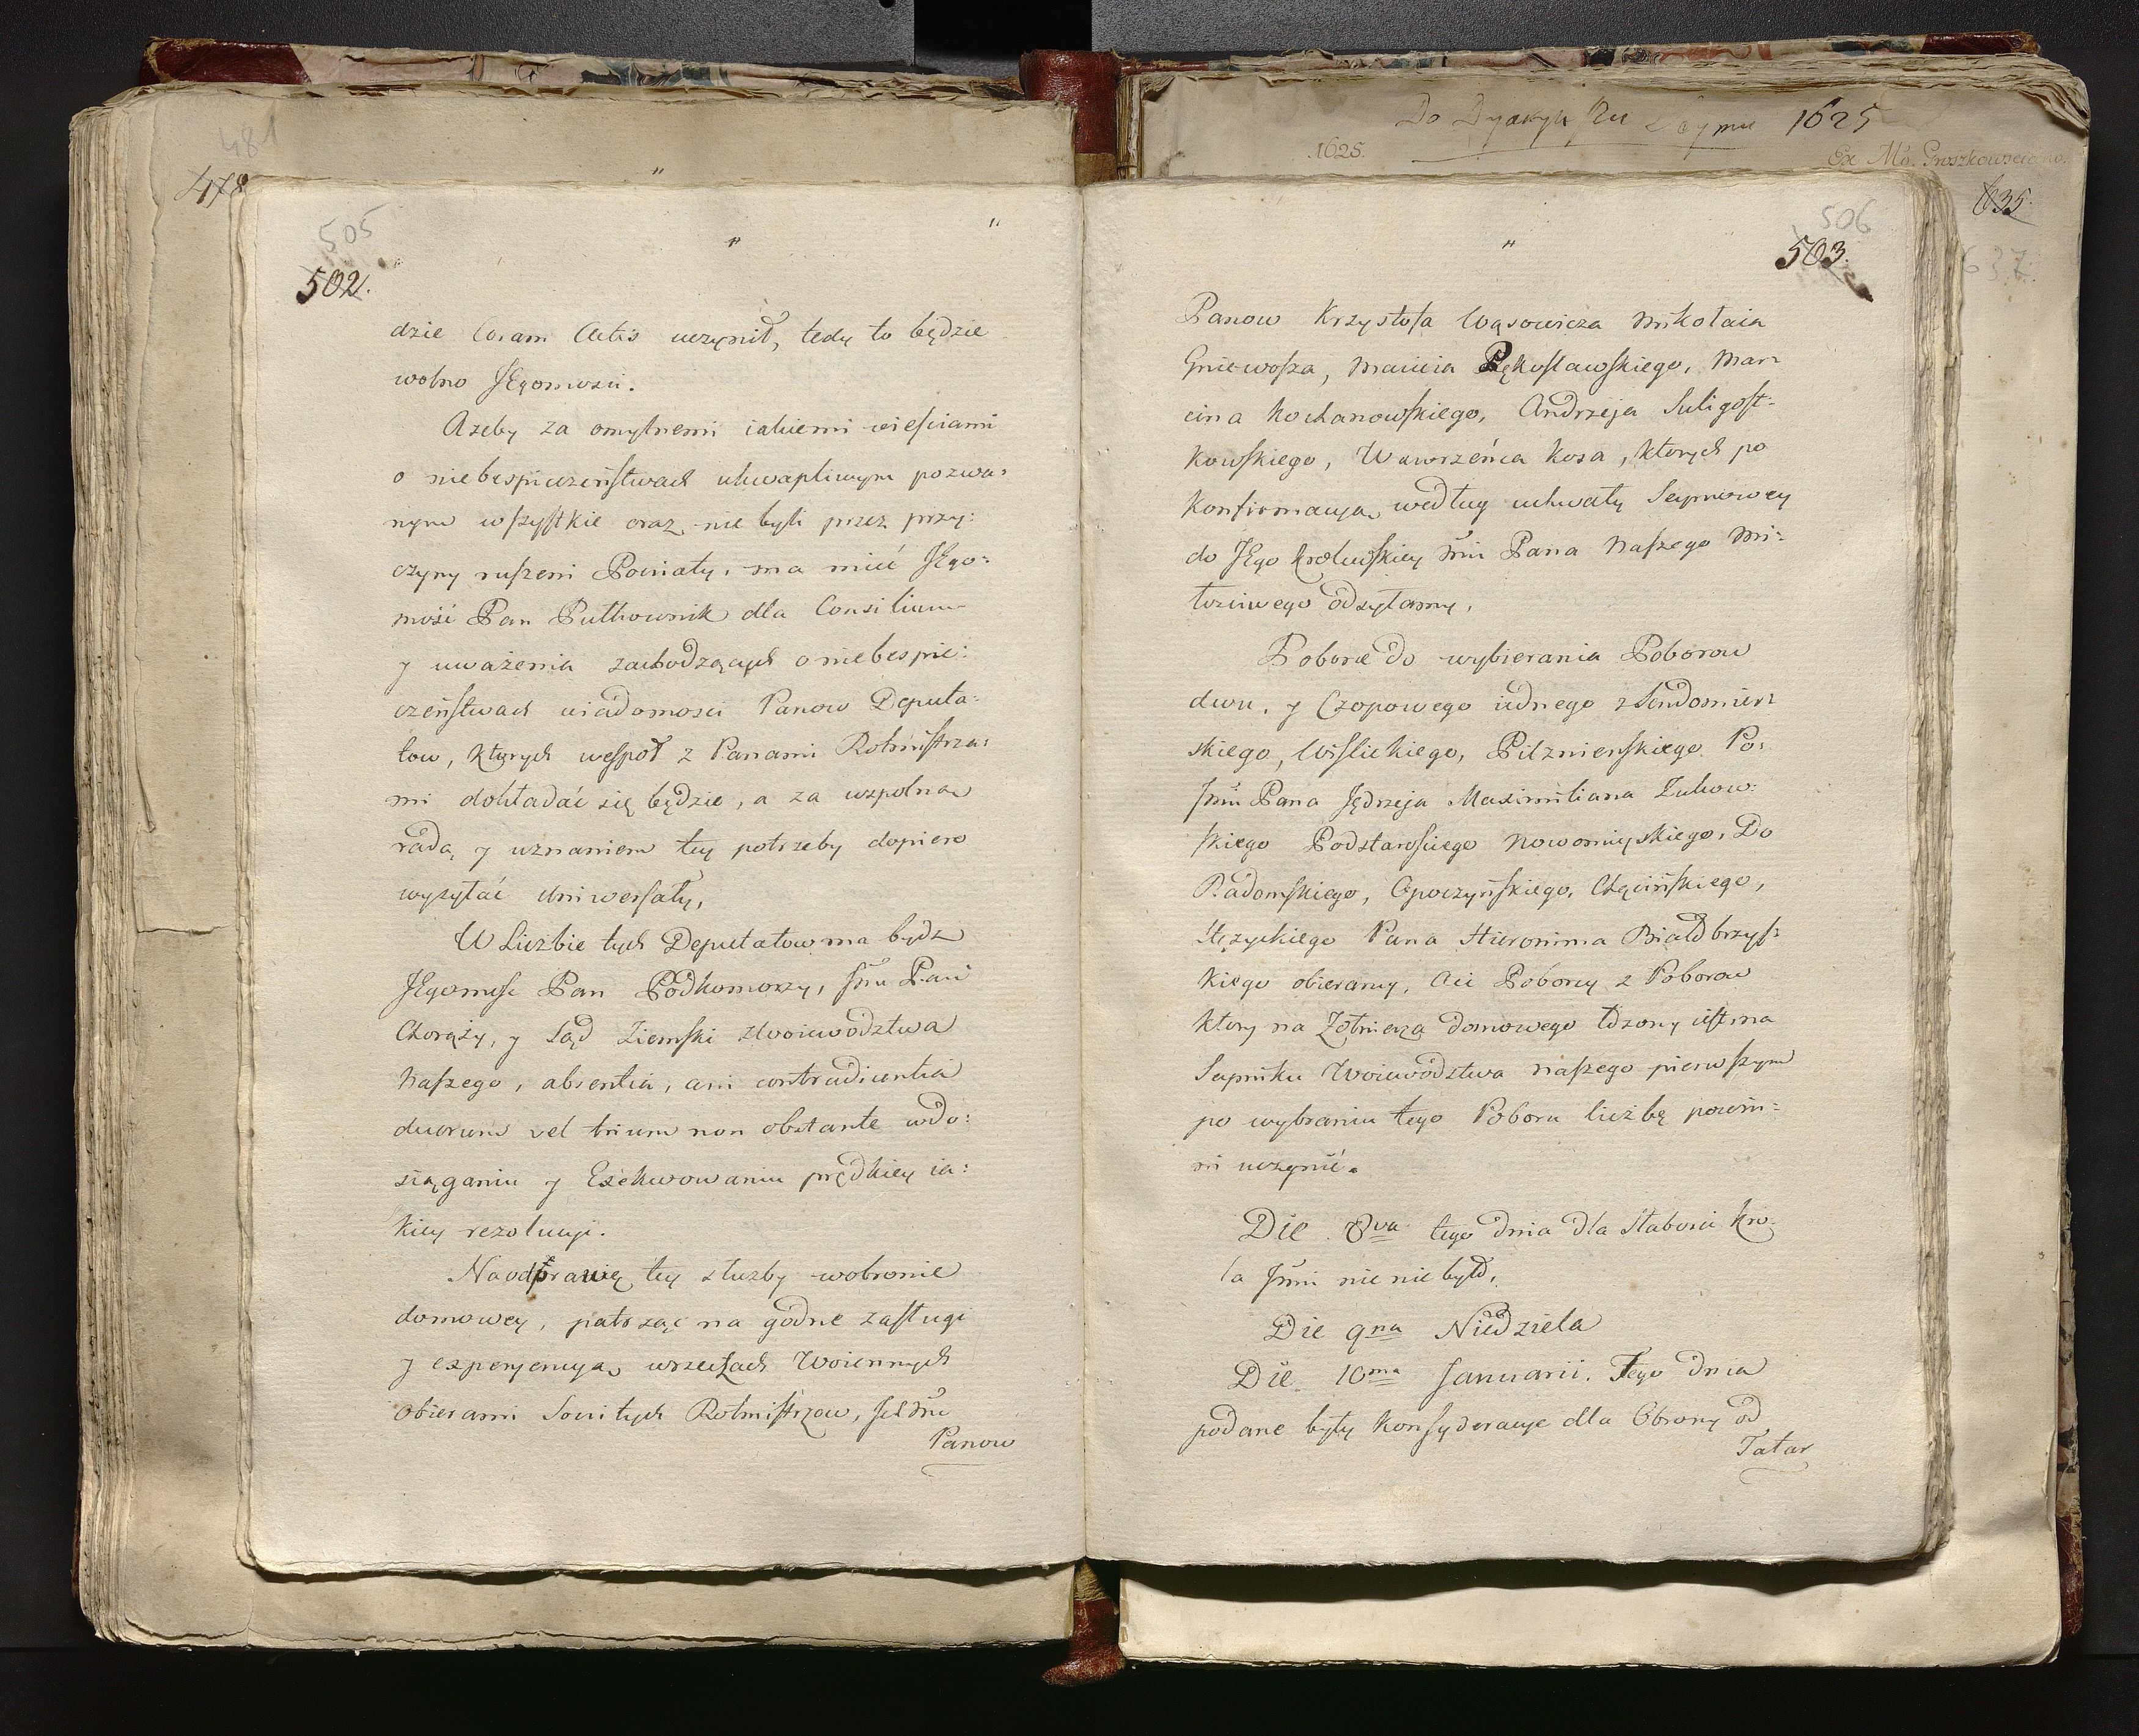 481
478
"
505
502.
"
"
dzie Coram Actis uczynił, tedy to będzie
wolno JEgomosci.
Azeby za omylnemi iakiemi wiesciami
o niebespieczeństwach ukwapliwym pozwa:
nym wszystkie oraz nie byli przez przy:
czyny ruszeni Powiaty, ma mieć JEgo:
mość Pan Pułkownik dla Consilium
y uważenia zachodzących o niebespie:
czeństwach wiadomosci Panow Deputa:
tow, ktorych wespoł z Panami Rotmistrza:
mi dokładać się będzie, a za wspolną
radą y uznaniem tey potrzeby dopiero
wysyłać Uniwersały,
W Liczbie tych Deputatow ma bydz
JEgomość Pan Podkomorzy, Jmć Pan
Chorąży, y Sąd Ziemski Woiewodztwa
Naszego, absentia, ani contradicentia
duorum vel trium non obstante wdo:
siąganiu y Exekwowaniu prędkiey ia:
kiey rezolucyi.
Na odprawię tey służby wobronie
domowey, patrząc na godne zasługi
y experyencyą wrzeczach Woiennych
obierami Rotmistrzow,
Panow
Do Dyaryuszu Seymu 1625
1625.
Ex Mo. Groszkowsciano.
635.
637.
506
503.
"
Panow Krzysztofa Wąsowicza Mikołaia
Gniewosza, Macieia Rękosławskiego, Mar:
cina Kochanowskiego, Andrzeja Suligost:
kowskiego, Wawrzeńca Kosa, ktorych po
Konfirmacyą według uchwały Seymowey
do JEgo Krolewskiey Mci Pana Naszego Mi:
łosciwego odsyłamy,
Poborce do wybierania Poborow
dwu, y Czopowego iednego z Sendomier:
skiego, Wislickiego, Pilznienskiego Po:
Jmci Pana Jędrzeja Maximiliana Zukow:
skiego Podstarosciego Nowomieyskiego, Do
Radomskiego, Opoczyńskiego, Chęcińskiego,
Stęzyckiego Pana Hieronima Białobrzys:
kiego obieramy, Ci Poborcy z Poborow
ktory na Żołnierza domowego iest na
Seymiku Woiewodztwa naszego pierwszym
po wybraniu tego Poboru liczbę powin:
ni uczynić.
Die 8va tego dnia dla słabosci Kro:
la Jmci nic nie było,
Die 9na Niedziela
Die 10ma Januarii. Tego dnia
podane były Konsyderacye dla Obrony od
Tatar